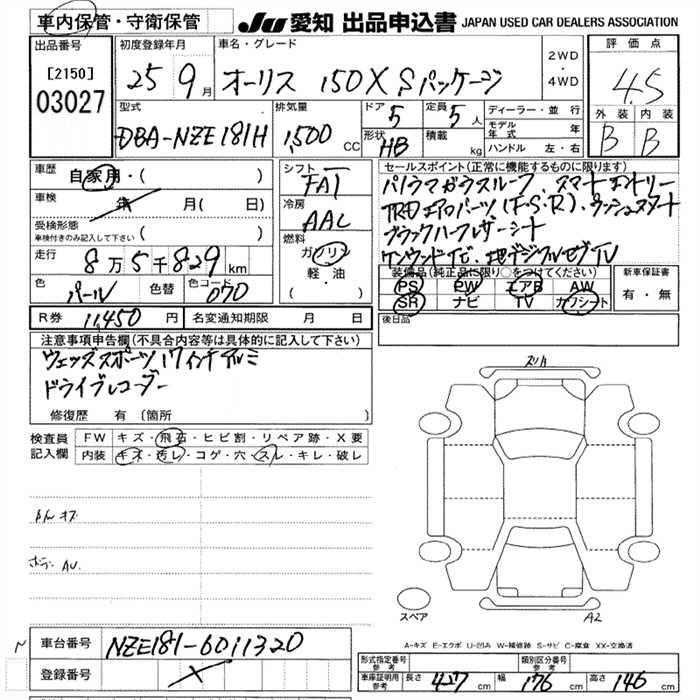 車内保管・守衛保管
JU 愛知 出品申込書 JAPAN USED CAR DEALERS ASSOCIATION
出品番号
[2150]
03027
初度登録年月
25 9月
車名・グレード
オーリス 150X Sパッケージ
2WD
・
4WD
評価点
4.5
外装 内装
B B
型式
DBA-NZE181H
排気量
1,500 CC
ドア 5
形状 HB
定員 5 人
積載 kg
ディーラー・並 行
モデル年式 年
ハンドル 左・右
車歴 自家用・( )
車検 年 月( 日)
受検形態
車検付きのみ記入して下さい ( )
走行 8万5千829km
色 パール 色替 色コード 070
シフト
FAT
冷房
AAC
燃料
ガソリン
軽・油
( )
セールスポイント(正常に機能するものに限ります)
パノラマガラスルーフ、スマートエントリー
TRDエアロパーツ(F・S・R)、プッシュスタート
ブラックハーフレザーシート
ケンウッドナビ・地デジフルセグTV
装備品(純正品に限り○をつけてください)
PS PW エアB AW
SR ナビ TV カワシート
新車保証書
有・無
R券 11,450円 名変通知期限 月 日
後日品
注意事項申告欄(不具合内容等は具体的に記入して下さい)
ウェッズスポーツ17インチアルミ
ドライブレコーダー
修復歴 有 (箇所 )
検査員記入欄
FW キズ・飛石・ヒビ割・リペア跡・X要
内装 キズ・汚レ・コゲ・穴・スレ・キレ・破レ
ボデーAU.
スリ
スペア
A2
A-キズ E-エクボ U-凹み W-補修跡 S-サビ C-腐食 XX-交換済
N
車台番号 NZE181-6011320
登録番号
形式指定番号
参考
類別区分番号
参考
車庫証明用
参考
長さ 427cm 幅 176cm 高さ 146cm